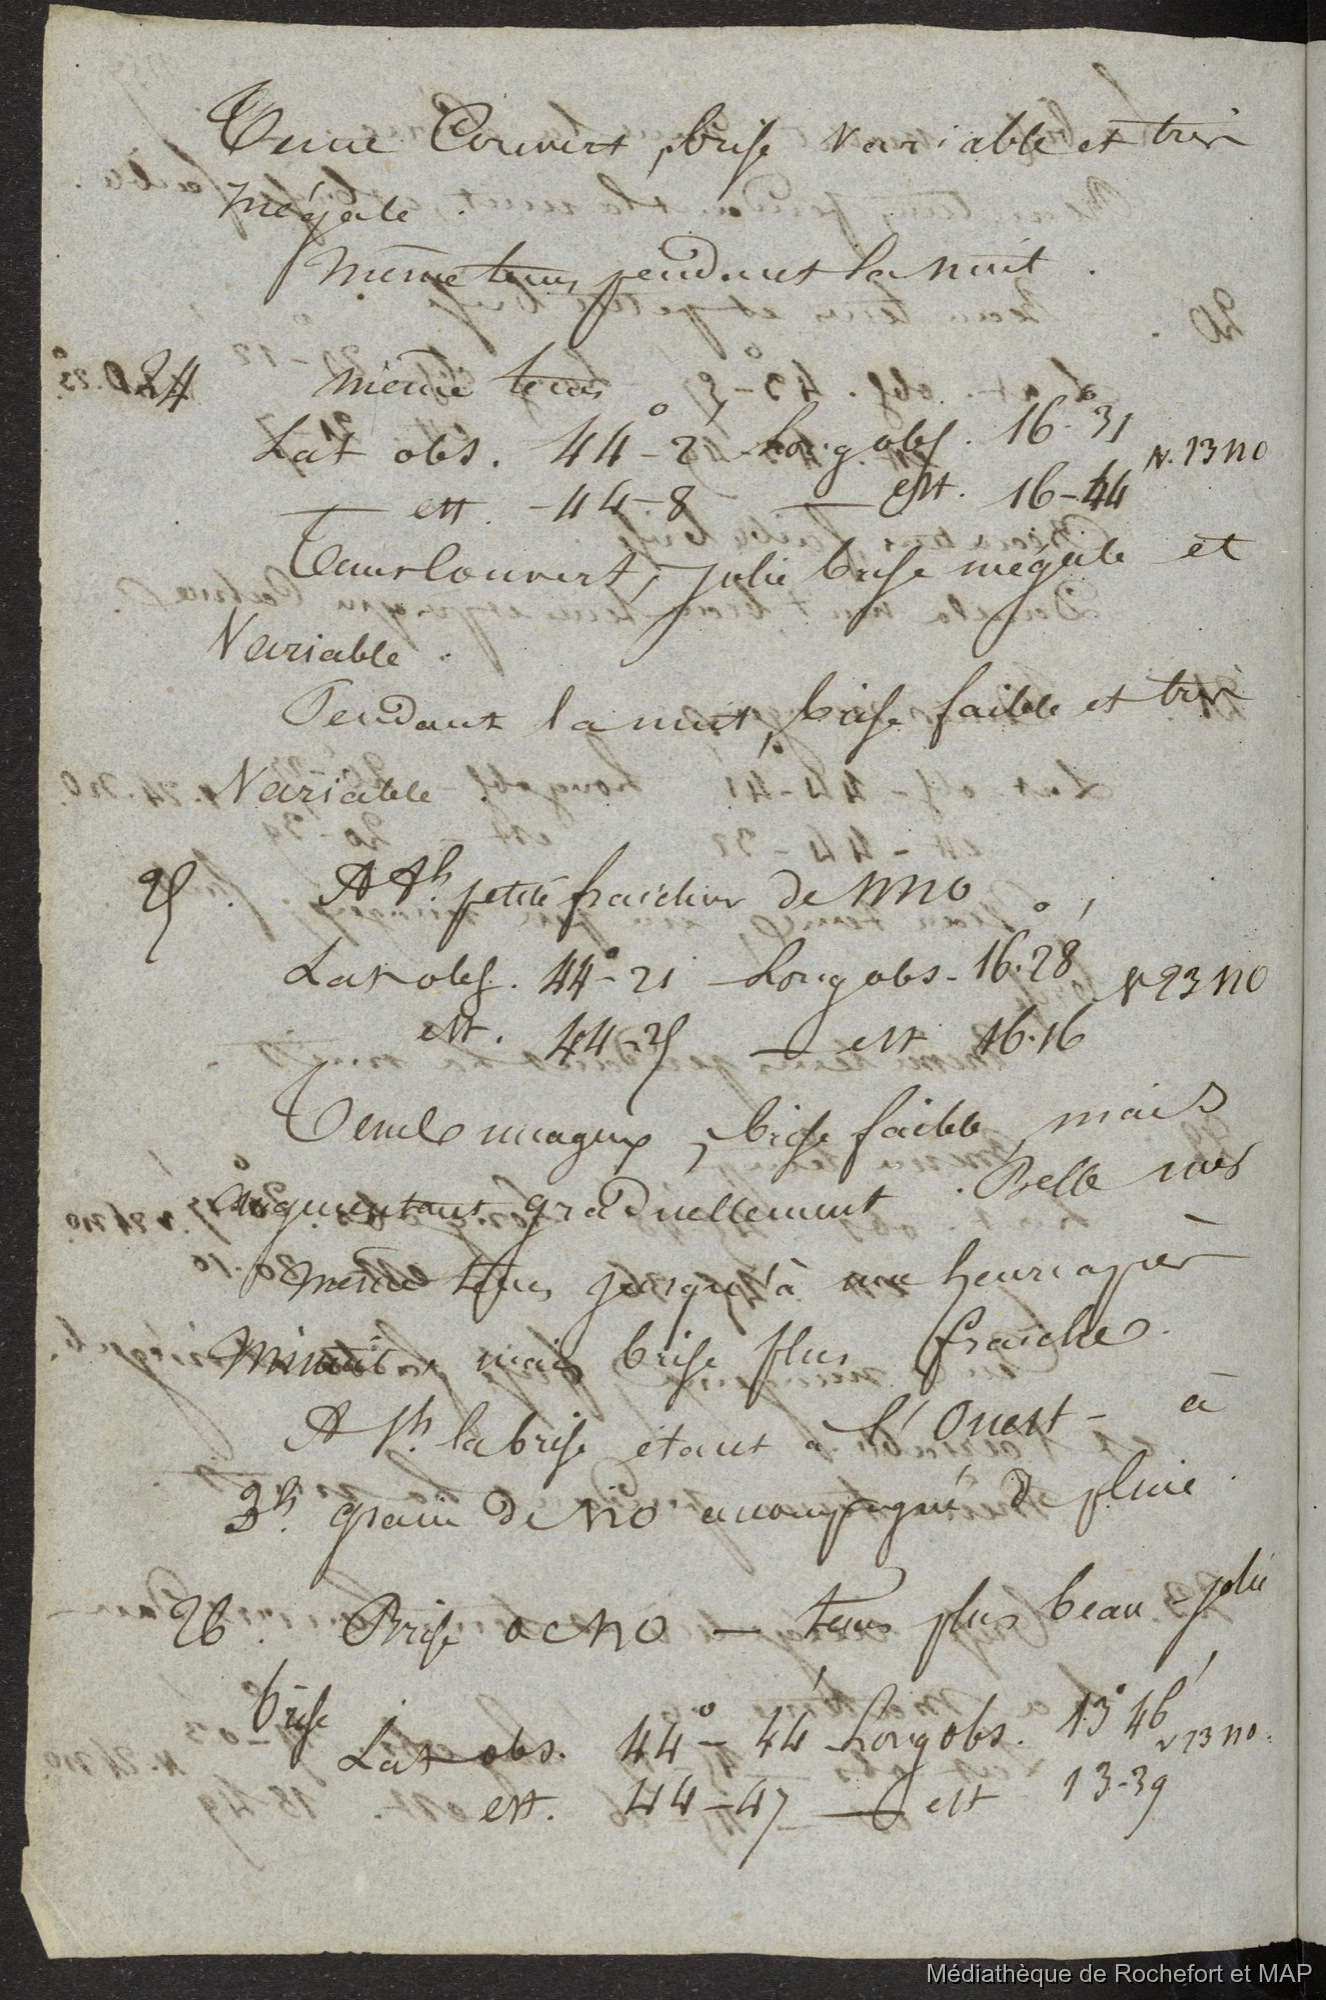 Tems Couvert, brise variable et très
inégale.
même tems pendant la nuit.
24 même tems
Lat obs. 44°-2' Long obs. 16°-31' V. 23 NO
— est. 44-8 — est. 16-44
Tems Couvert, jolie brise inégale et
Variable.
Pendant la nuit, brise faible et très
Variable.
25. A 4h. petite fraicheur de NNO
Lat obs. 44°-21 Long obs. 16°.28' V 23 NO
est. 44-25 — est 16.16
Tems nuageux, brise faible, mais
augmentant graduellement. Belle mer
même tems jusqu'à une heure après
Minuit, mais brise plus fraiche.
A 1h. la brise étant à l'Ouest - à
3h. grain de NO accompagné de pluie.
26. Brise O NO — tems plus beau - jolie
brise
Lat obs. 44°-44' Long obs. 13° 46' V 23 NO.
est. 44-47 — est 13-39
Médiathèque de Rochefort et MAP